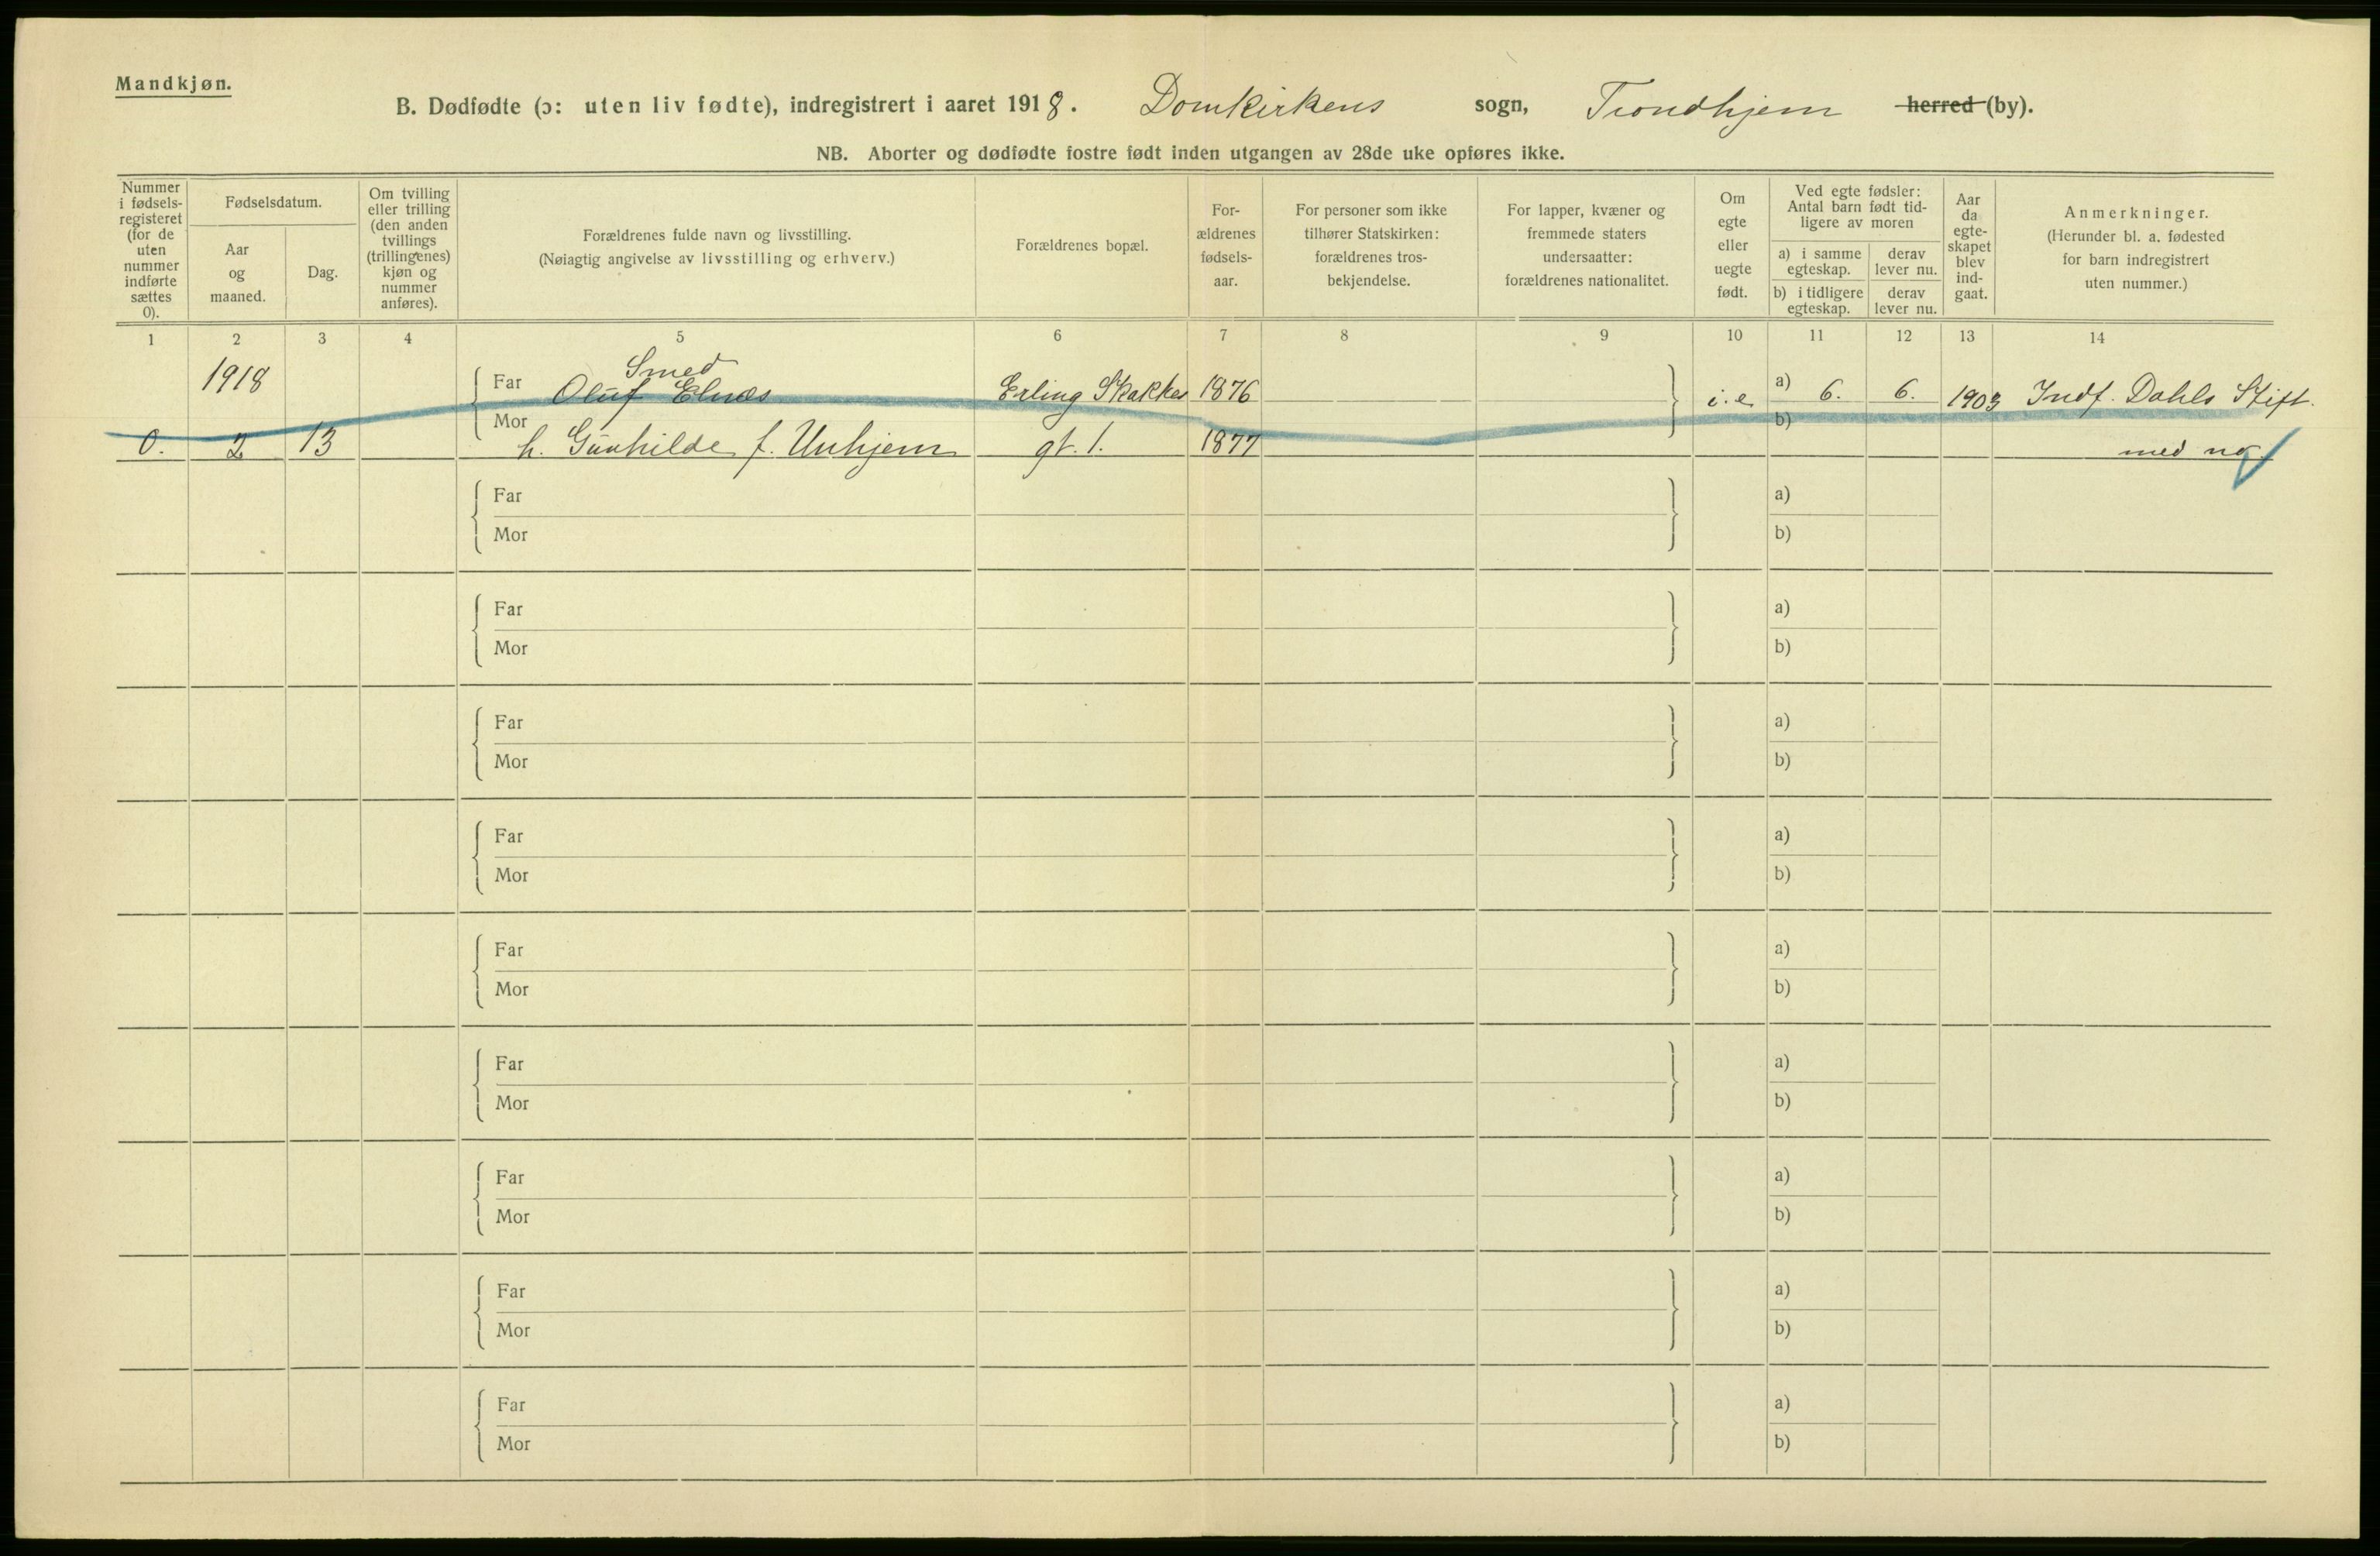 Mandkjøn.
B. Dødfødte (ɔ: uten liv fødte), indregistrert i aaret 1918. Domkirkens sogn, Trondhjem herred (by).
NB. Aborter og dødfødte fostre født inden utgangen av 28de uke opføres ikke.
Nummer i fødsels-registeret (for de uten nummer indførte sættes 0).
Fødselsdatum.
Aar og maaned.
Dag.
Om tvilling eller trilling (den anden tvillings (trillingenes) kjøn og nummer anføres).
Forældrenes fulde navn og livsstilling.
(Nøiagtig angivelse av livsstilling og erhverv.)
Forældrenes bopæl.
For-ældrenes fødsels-aar.
For personer som ikke tilhører Statskirken: forældrenes tros-bekjendelse.
For lapper, kvæner og fremmede staters undersaatter: forældrenes nationalitet.
Om egte eller uegte født.
Ved egte fødsler: Antal barn født tid-ligere av moren
a) i samme egteskap.
derav lever nu.
b) i tidligere egteskap.
derav lever nu.
Aar da egte-skapet blev ind-gaat.
Anmerkninger.
(Herunder bl. a. fødested for barn indregistrert uten nummer.)
1 2 3 4 5 6 7 8 9 10 11 12 13 14
Smed
1918 Far Oluf Elnæs Erling Skakkes 1876 i.e. a) 6. 6. 1903 Indf. Dahls Stift.
Mor b)
0. 2 13 h. Gunhilde f. Unhjem gt. 1. 1877 med no.
Far a)
Mor b)
Far a)
Mor b)
Far a)
Mor b)
Far a)
Mor b)
Far a)
Mor b)
Far a)
Mor b)
Far a)
Mor b)
Far a)
Mor b)
Far a)
Mor b)